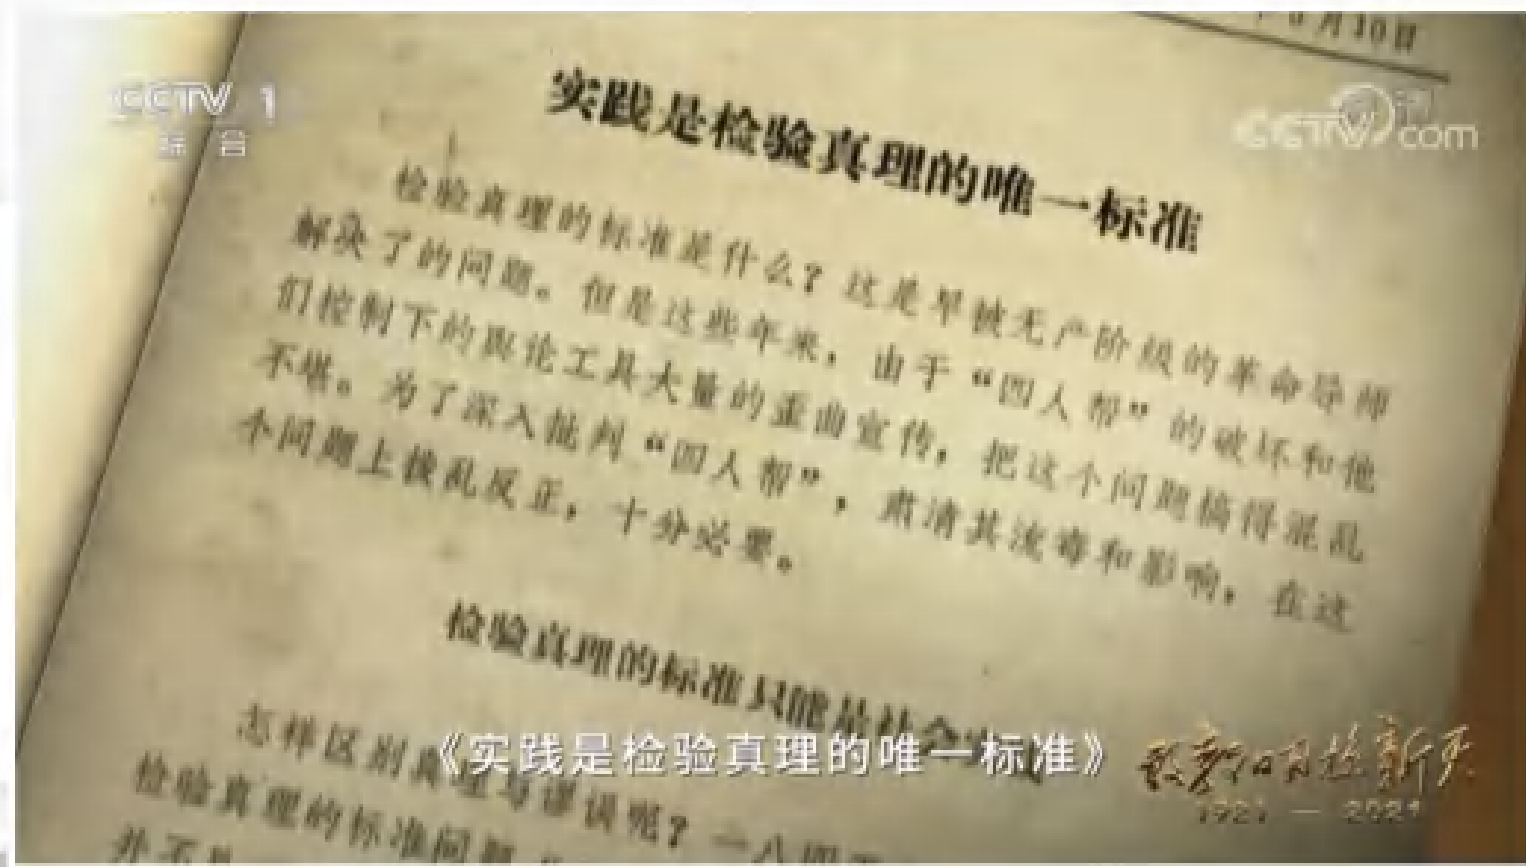 月10日
CCTV 1
综合
CCTV.com
实践是检验真理的唯一标准
检验真理的标准是什么？这是早被无产阶级的革命导师
解决了的问题。但是这些年来，由于“四人帮”的破坏和他
们控制下的舆论工具大量的歪曲宣传，把这个问题搞得混乱
不堪。为了深入批判“四人帮”，肃清其流毒和影响，在这
个问题上拨乱反正，十分必要。
检验真理的标准只能是社会
怎样区别真理与谬误呢？一八四
检验真理的标准问题
并不是
《实践是检验真理的唯一标准》
敢教日月换新天
1921—2021